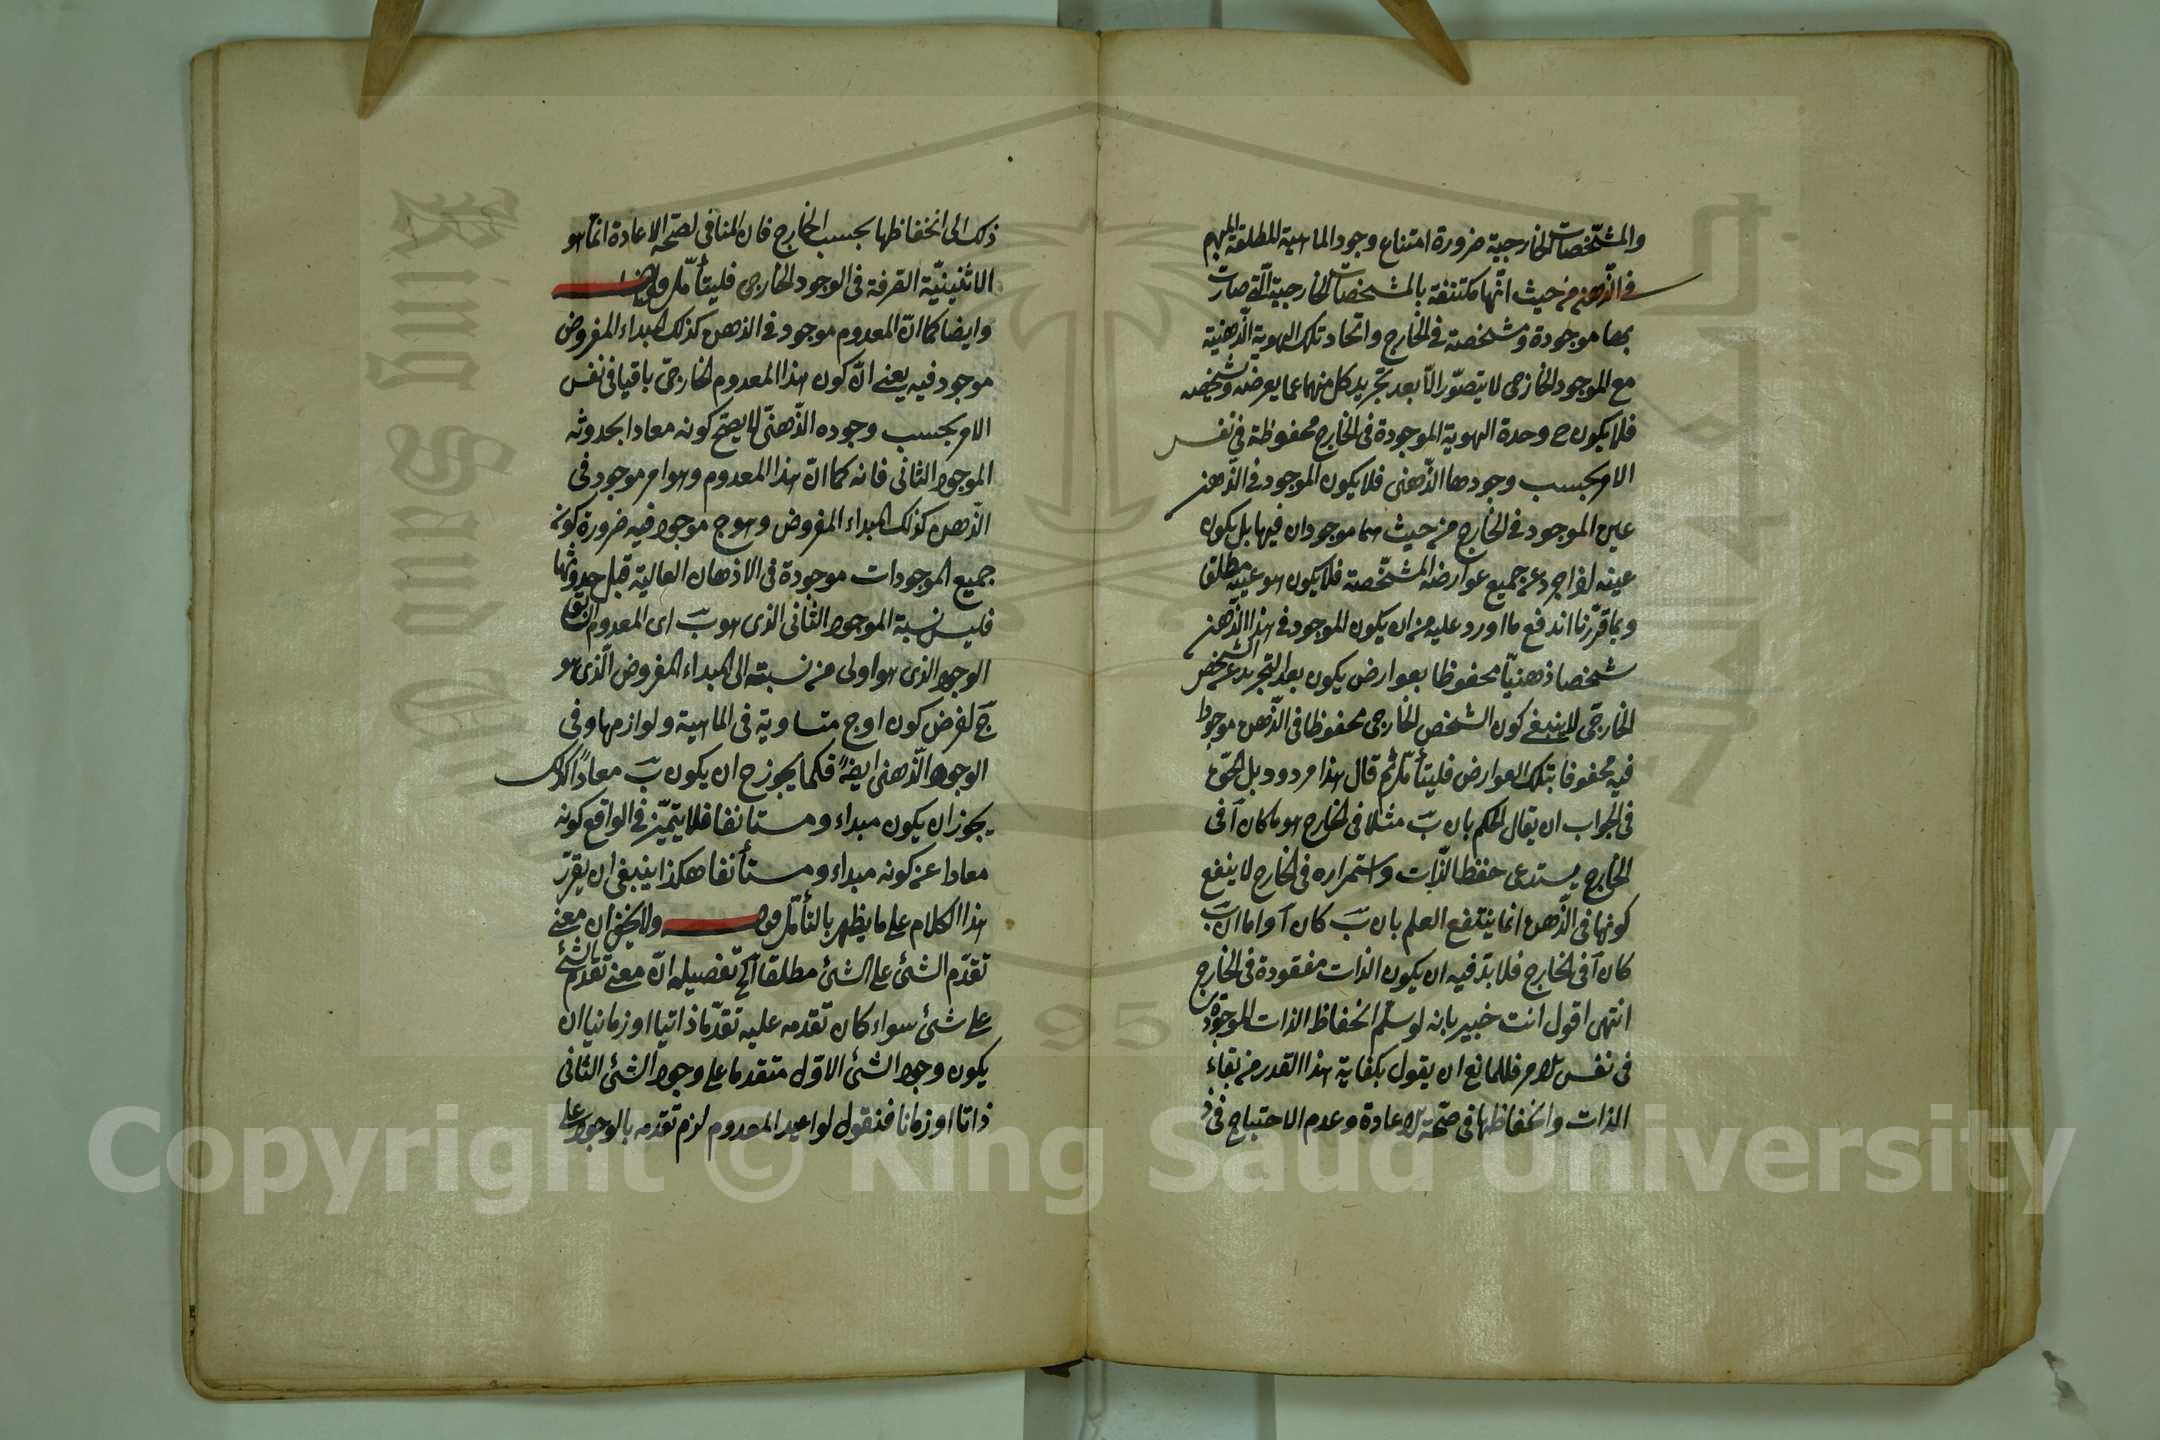 والمشخصات الخارجية ضرورة امتناع وجود الماهية المطلقة المبهم
في الذّهن من حيث انّها مكتنفة بالمشخصات الخارجية الّتي صارت
بها موجودة ومشخصة في الخارج واتحاد تلك الهوية الذّهنية
مع الموجود الخارجي لا يتصوّر الّا بعد تجريد كل منهما عما يعرضه ويشخصه
فلا يكون ح وحدة الهوية الموجودة في الخارج محفوظة في نفس
الامر بحسب وجودها الذّهني فلا يكون الموجود في الذّهن
عين الموجود في الخارج من حيث هما موجودان فيها بل يكون
عينه اذا جرد عن جميع عوارضه المشخّصة فلا يكون هو عينه مطلقا
وبما قرّرنا اندفع ما اورد عليه من ان يكون الموجود في هذا الذّهن
شخصا ذهنيّا محفوظا بعوارض يكون بعد التجريد عن الشخص
الخارجّي لا ينبغي كون الشخص الخارجي محفوظا في الذّهن موجودا
فيه محفوفا بتلك العوارض فليتأمّل ثم قال هذا مردود بل الحقّ
في الجواب ان يقال الحكم بان بَ مثلا في الخارج هو ما كان آ في
الخارج يستدعى حفظ الذّات واستمراره في الخارج لا ينفع
كونها في الذّهن انما ينتفع العلم بان بَ كان آ واما ان بَ
كان آ في الخارج فلا بدّ فيه ان يكون الذات مفقودة في الخارج
انتهى اقول انت خبير بانه لو سلّم انحفاظ الذات الموجودة
في نفس الامر فللمانع ان يقول بكفاية هذا القدر من بقاء
الذات وانحفاظها في صحّة الاعادة وعدم الاحتياج في
ذلك الى انحفاظها بحسب الخارج فان المنافي لصحّة الاعادة انما هو
الاثنينيّة الصرفة في الوجود الخارجي فليتأمّل
وايضا كما انّ المعدوم موجود في الذهن كذلك المبداء المفروض
موجود فيه يعني انّ كون هذا المعدوم الخارجّي باقيا في نفس
الامر بحسب وجوده الذّهنيّ لا يصحّ كونه معادا بحدوثه
الموجود الثاني فانه كما انّ هذا المعدوم وهو امر موجود في
الذّهن كذلك المبداء المفروض وهو ج موجود فيه ضرورة كون
جميع الموجودات موجودة في الاذهان العالية قبل حدوثها
فليس نسبة الموجود الثاني الذي هو بَ اى المعدوم السابق
الوجود الذي هو اولى من نسبته الى المبداء المفروض الّذي هو
جَ لفرض كون ا و ج متساوية في الماهية ولوازمها وفي
الوجود الذّهني ايضا فكما يجوز ح ان يكون بَ معاداً كذلك
يجوز ان يكون مبداء ومستأنفا فلا يتميّز في الواقع كونه
معادا عن كونه مبداء ومستأنفا هكذا ينبغي ان يقرّر
هذا الكلام على ما يظهر بالتأمّل قوله ولا يخفى ان معنى
تقدّم الشئ على الشئ مطلقا الخ تفصيله انّ معنى تقدّم الشئ
على شئ سواء كان تقدمه عليه تقدّما ذاتيا او زمانيا ان
يكون وجود الشئ الاوّل متقدما على وجود الشئ الثاني
ذاتا او زمانا فنقول لو اعيد المعدوم لزم تقدمه بالوجود على
King Saud University
1957
Copyright © King Saud University